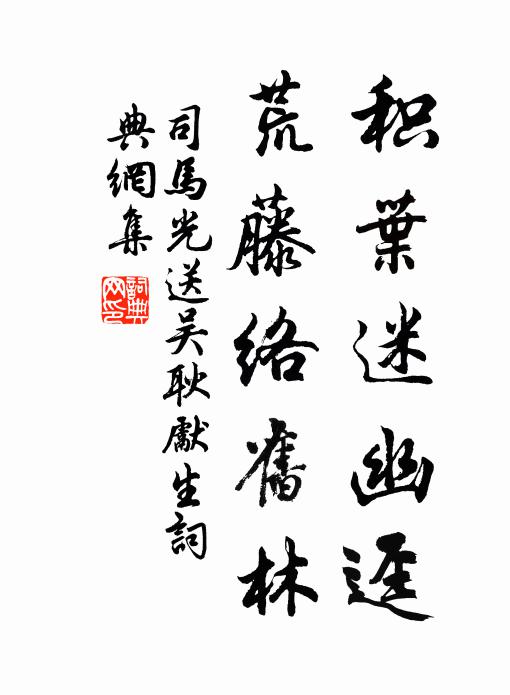 积葉迷幽逕
荒藤络舊林
司馬光送吴耿獻生詞
典網集
詞典
网印